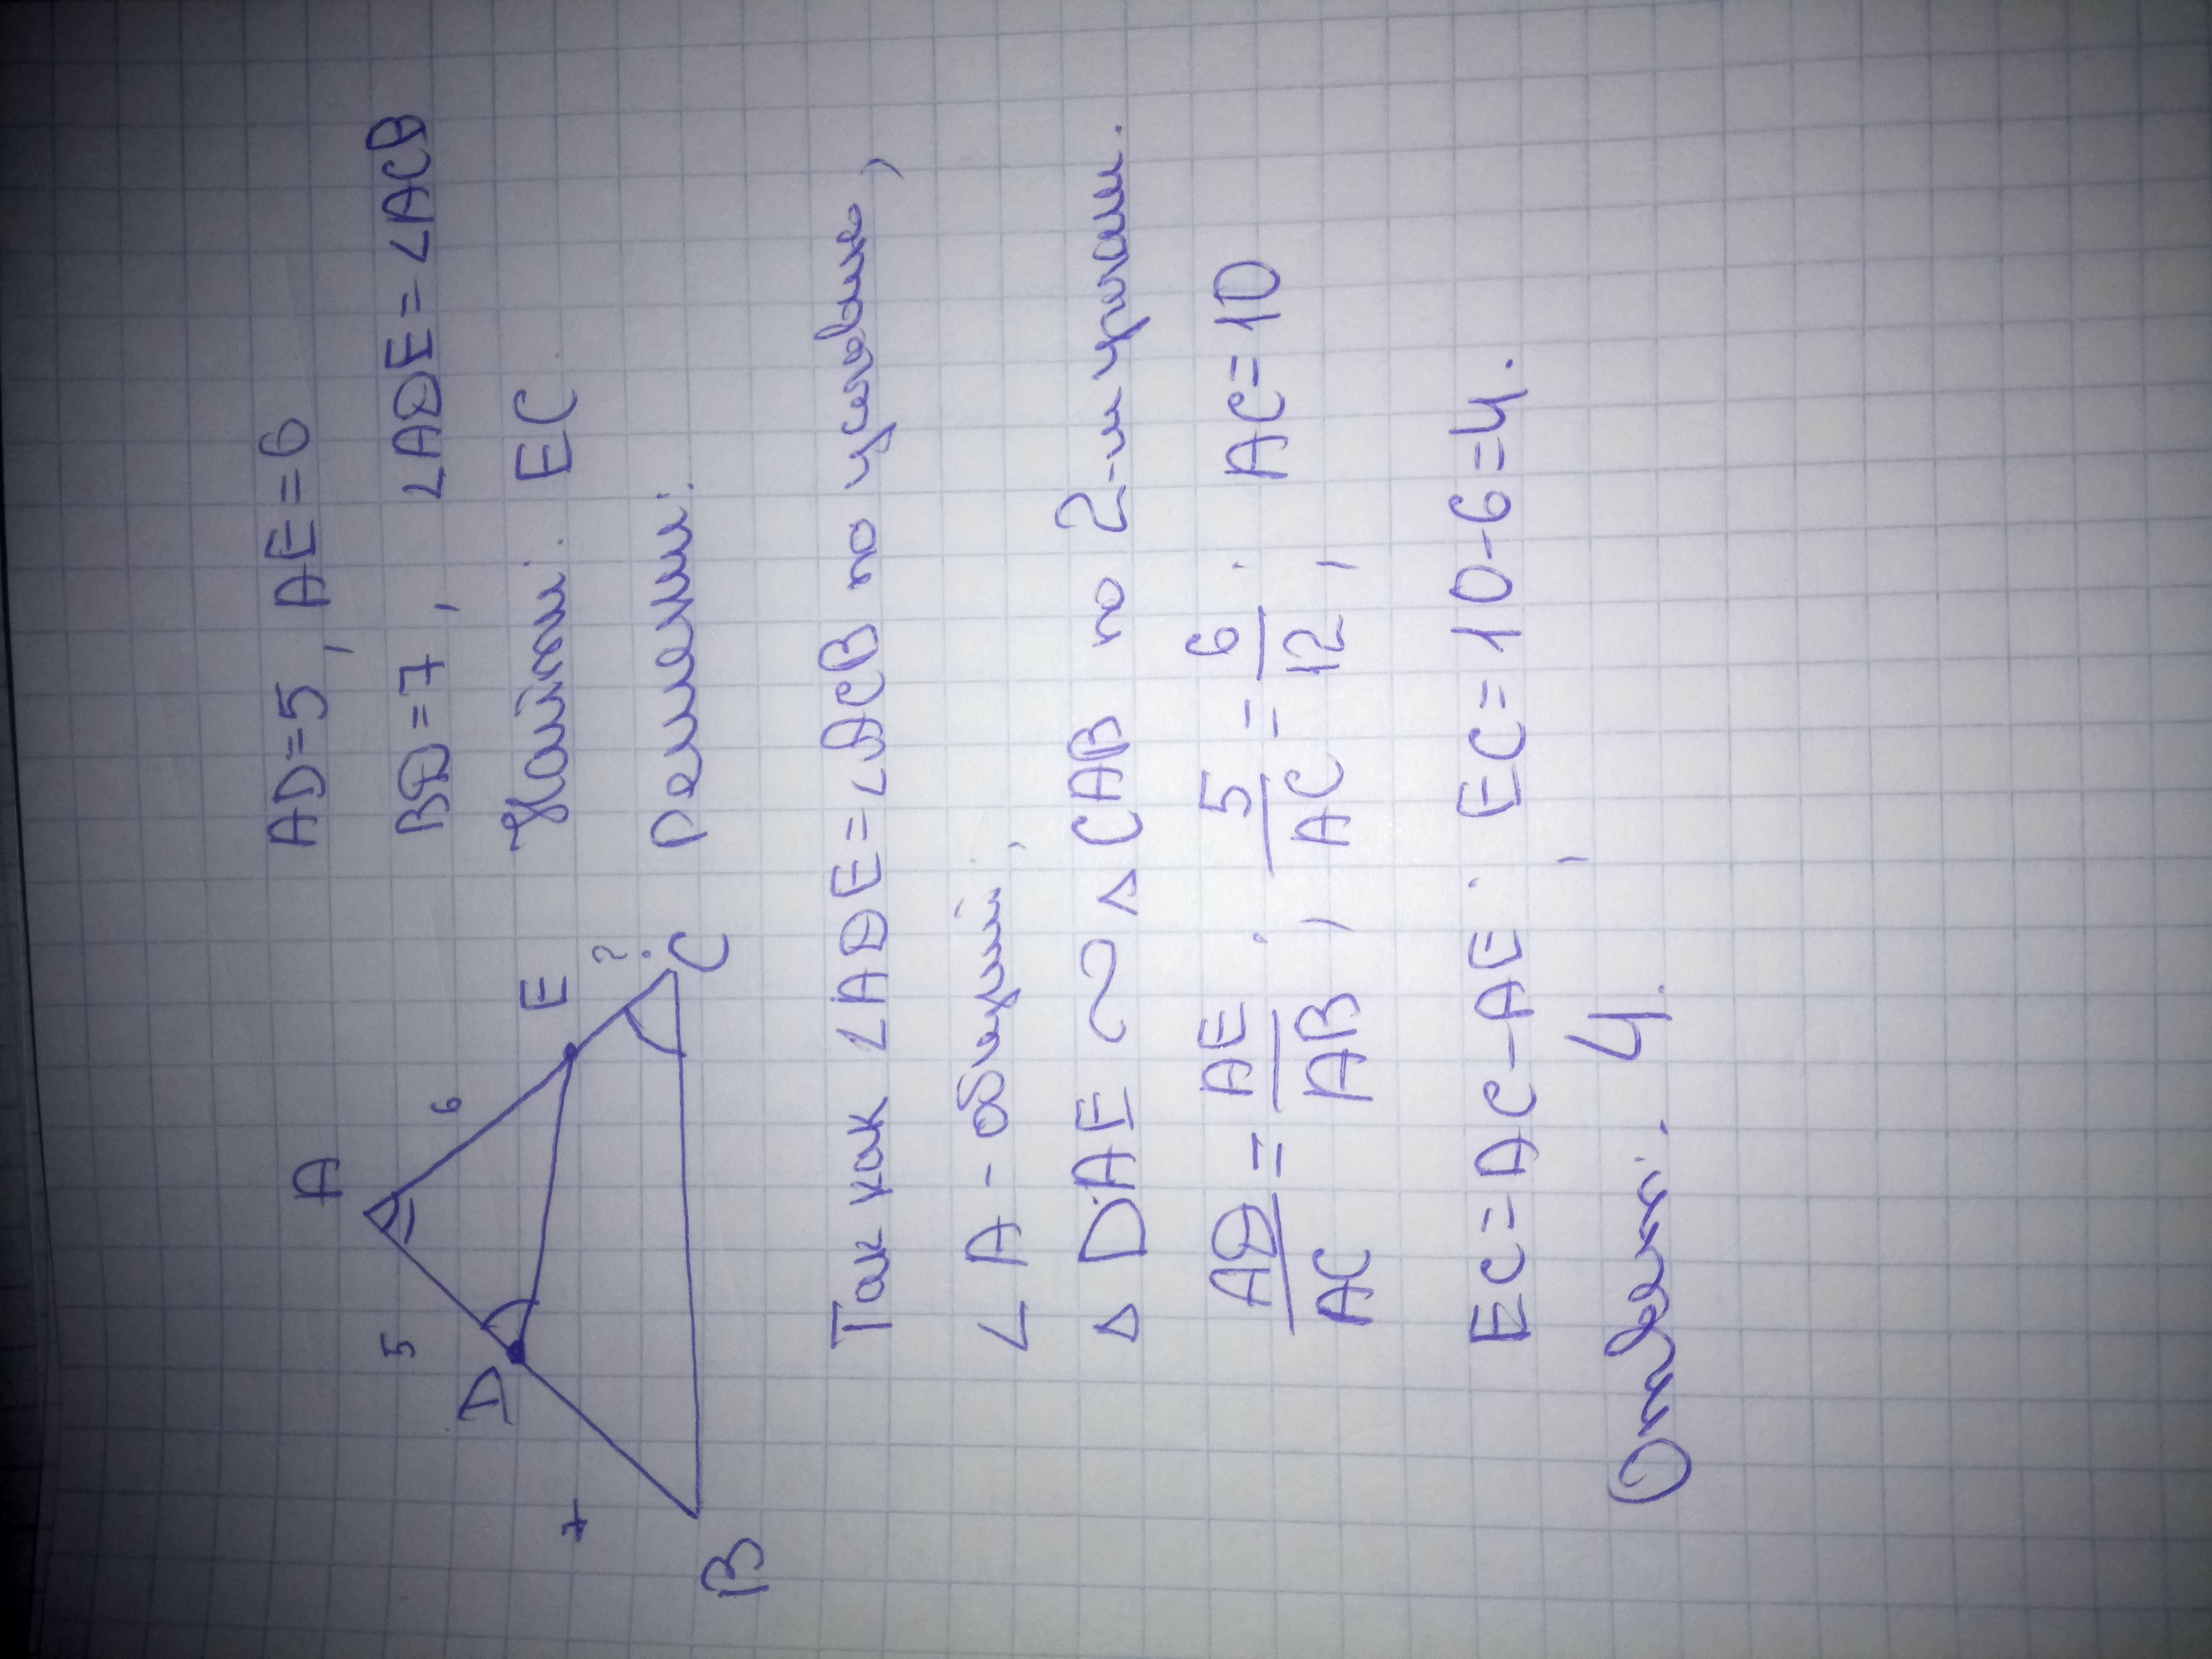 AD=5, AE=6
BD=7, ∠ADE=∠ACB
Найти: EC
Решение:
A
5
6
D
E
?
7
B
C
Так как ∠ADE=∠ACB по условию,
∠A - общий;
△DAE ∾ △CAB по 2-м углам.
AD/AC = AE/AB ; 5/AC = 6/12 ; AC=10
EC=AC-AE; EC=10-6=4.
Ответ: 4.